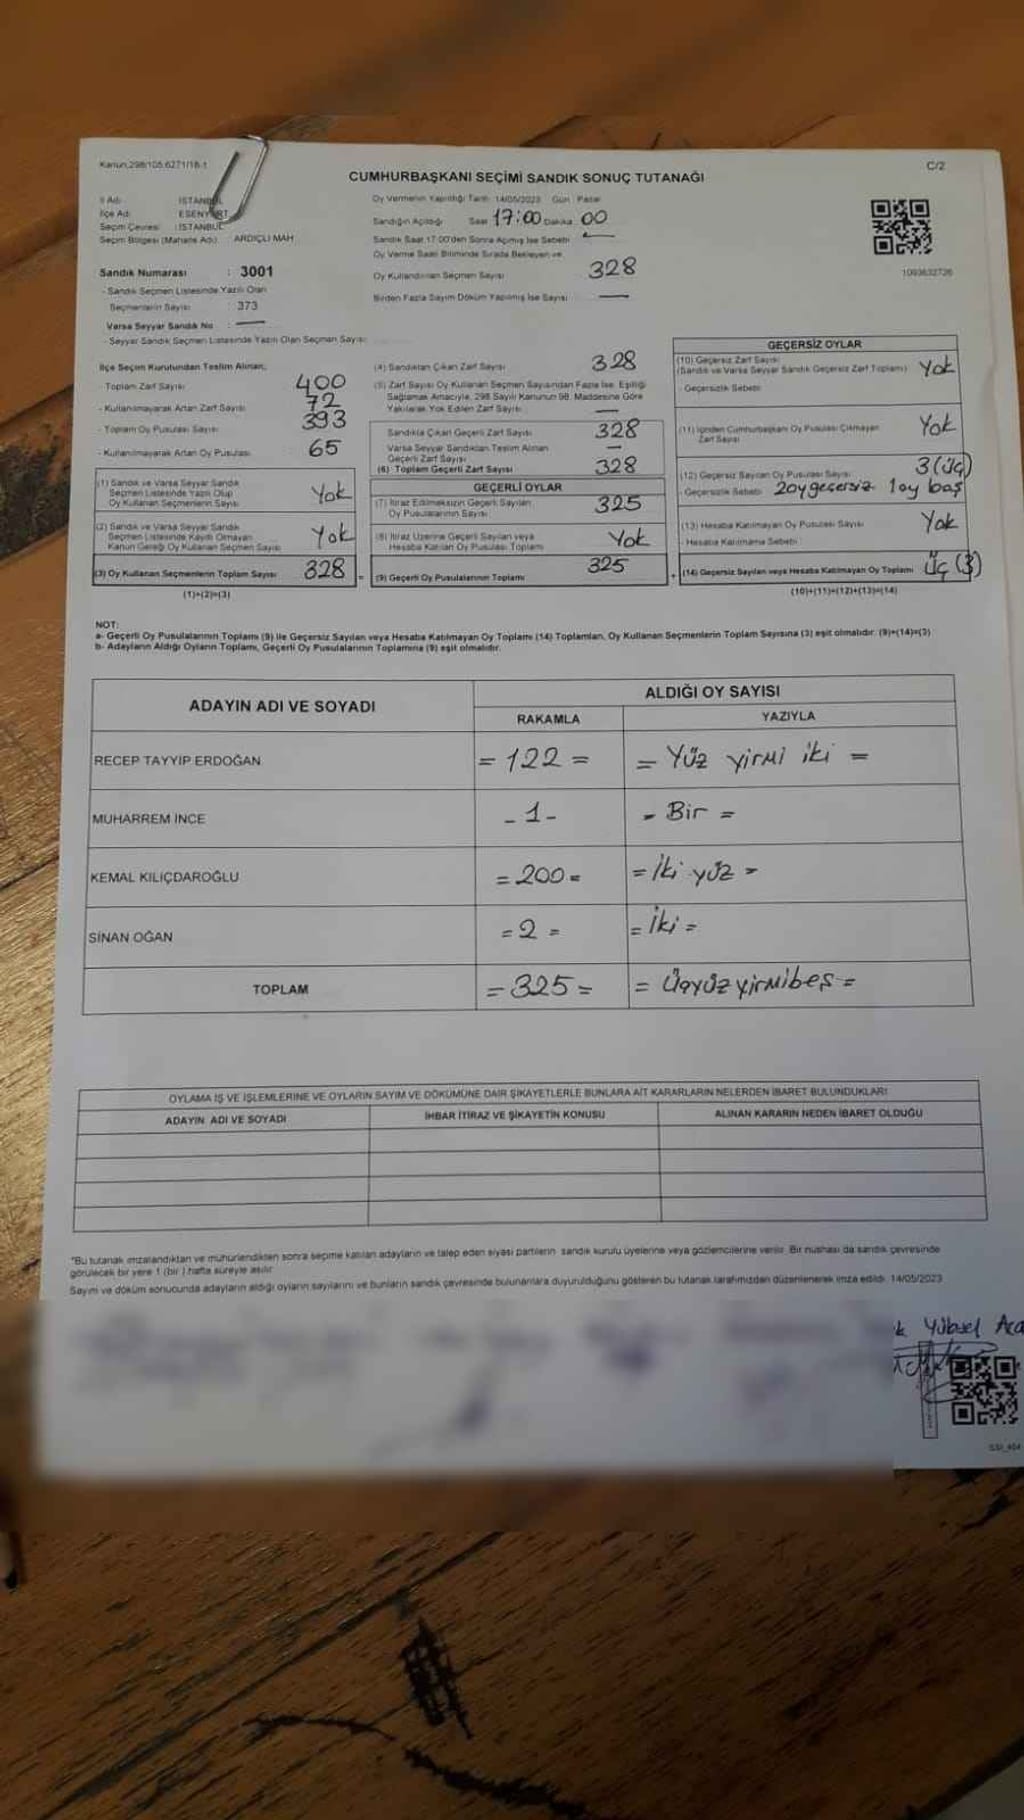 Kanun,298/105.6271/18-1
C/2
CUMHURBAŞKANI SEÇİMİ SANDIK SONUÇ TUTANAĞI
İl Adı : İSTANBUL
İlçe Adı : ESENYURT
Seçim Çevresi : İSTANBUL
Seçim Bölgesi (Mahalle Adı) : ARDIÇLI MAH.
Sandık Numarası : 3001
- Sandık Seçmen Listesinde Yazılı Olan
Seçmenlerin Sayısı : 373
Varsa Seyyar Sandık No : —
- Seyyar Sandık Seçmen Listesinde Yazılı Olan Seçmen Sayısı:
Oy Vermenin Yapıldığı Tarih: 14/05/2023 Gün: Pazar
Sandığın Açıldığı Saat 17:00 Dakika 00
Sandık Saat 17:00'den Sonra Açılmış İse Sebebi —
Oy Verme Saati Bitiminde Sırada Bekleyen ve
Oy Kullandırılan Seçmen Sayısı 328
Birden Fazla Sayım Döküm Yapılmış İse Sayısı —
1093632726
İlçe Seçim Kurulundan Teslim Alınan;
- Toplam Zarf Sayısı 400
- Kullanılmayarak Artan Zarf Sayısı 72
- Toplam Oy Pusulası Sayısı 393
- Kullanılmayarak Artan Oy Pusulası 65
(1) Sandık ve Varsa Seyyar Sandık
Seçmen Listesinde Yazılı Olup
Oy Kullanan Seçmenlerin Sayısı Yok
(2) Sandık ve Varsa Seyyar Sandık
Seçmen Listesinde Kayıtlı Olmayan
Kanun Gereği Oy Kullanan Seçmen Sayısı Yok
(3) Oy Kullanan Seçmenlerin Toplam Sayısı 328
(1)+(2)=(3)
(4) Sandıktan Çıkan Zarf Sayısı 328
(5) Zarf Sayısı Oy Kullanan Seçmen Sayısından Fazla İse, Eşitliği
Sağlamak Amacıyla, 298 Sayılı Kanunun 98. Maddesine Göre
Yakılarak Yok Edilen Zarf Sayısı —
Sandıkta Çıkan Geçerli Zarf Sayısı 328
Varsa Seyyar Sandıktan Teslim Alınan
Geçerli Zarf Sayısı —
(6) Toplam Geçerli Zarf Sayısı 328
GEÇERLİ OYLAR
(7) İtiraz Edilmeksizin Geçerli Sayılan
Oy Pusulalarının Sayısı 325
(8) İtiraz Üzerine Geçerli Sayılan veya
Hesaba Katılan Oy Pusulası Toplamı Yok
(9) Geçerli Oy Pusulalarının Toplamı 325
GEÇERSİZ OYLAR
(10) Geçersiz Zarf Sayısı
(Sandık ve Varsa Seyyar Sandık Geçersiz Zarf Toplamı) Yok
- Geçersizlik Sebebi
(11) İçinden Cumhurbaşkanı Oy Pusulası Çıkmayan
Zarf Sayısı Yok
(12) Geçersiz Sayılan Oy Pusulası Sayısı 3 (üç)
- Geçersizlik Sebebi 2oy geçersiz 1oy boş
(13) Hesaba Katılmayan Oy Pusulası Sayısı Yok
- Hesaba Katılmama Sebebi
(14) Geçersiz Sayılan veya Hesaba Katılmayan Oy Toplamı Üç (3)
(10)+(11)+(12)+(13)=(14)
NOT:
a- Geçerli Oy Pusulalarının Toplamı (9) ile Geçersiz Sayılan veya Hesaba Katılmayan Oy Toplamı (14) Toplamları, Oy Kullanan Seçmenlerin Toplam Sayısına (3) eşit olmalıdır. (9)+(14)=(3)
b- Adayların Aldığı Oyların Toplamı, Geçerli Oy Pusulalarının Toplamına (9) eşit olmalıdır.
ADAYIN ADI VE SOYADI
ALDIĞI OY SAYISI
RAKAMLA YAZIYLA
RECEP TAYYİP ERDOĞAN = 122 = = Yüz yirmi iki =
MUHARREM İNCE - 1 - - Bir =
KEMAL KILIÇDAROĞLU = 200 = = İki yüz =
SİNAN OĞAN = 2 = = İki =
TOPLAM = 325 = = Üçyüzyirmibeş =
OYLAMA İŞ VE İŞLEMLERİNE VE OYLARIN SAYIM VE DÖKÜMÜNE DAİR ŞİKAYETLERLE BUNLARA AİT KARARLARIN NELERDEN İBARET BULUNDUKLARI
ADAYIN ADI VE SOYADI İHBAR İTİRAZ VE ŞİKAYETİN KONUSU ALINAN KARARIN NEDEN İBARET OLDUĞU
*Bu tutanak imzalandıktan ve mühürlendikten sonra seçime katılan adayların ve talep eden siyasi partilerin sandık kurulu üyelerine veya gözlemcilerine verilir. Bir nüshası da sandık çevresinde
görülecek bir yere 1 (bir) hafta süreyle asılır.
Sayım ve döküm sonucunda adayların aldığı oyların sayılarını ve bunların sandık çevresinde bulunanlara duyurulduğunu gösteren bu tutanak tarafımızdan düzenlenerek imza edildi. 14/05/2023
Yüksel Aca